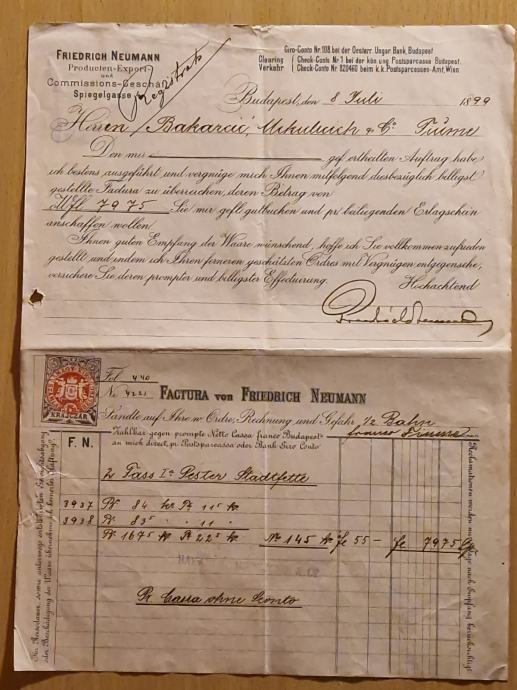 FRIEDRICH NEUMANN
Producten-Export
und
Commissions-Geschäft
Spiegelgasse
Registrato
Giro-Conto Nr. 108 bei der Oesterr. Ungar Bank, Budapest
Clearing Verkehr
Check-Conto Nr 1 bei der kön. ung. Postsparcasse Budapest.
Check-Conto Nr 820460 beim k.k. Postsparcassen-Amt, Wien
Budapest, den 8 Juli 1899
Herren Bakarcić, Mikulicich & Co Fiume
Den mir gef. ertheilten Auftrag habe
ich bestens ausgeführt und vergnüge mich Ihnen mitfolgend diesbezüglich billigst
gestellte Factura zu überreichen, deren Betrag von
Wfl 79 75 Sie mir gefl. gutbuchen und pr. beiliegenden Erlagschein
anschaffen wollen.
Ihnen guten Empfang der Waare wünschend, hoffe ich Sie vollkommen zufrieden
gestellt und indem ich Ihren ferneren geschätzten Ordres mit Vergnügen entgegensehe,
versichere Sie deren prompter und billigster Effectuierung.
Hochachtend
Friedrich Neumann
KRAJCZÁR
Fol 440
No 4221
FACTURA von FRIEDRICH NEUMANN
Sandte auf Ihre w. Ordre, Rechnung und Gefahr p. Bahn
franco Fiume
Zahlbar gegen prompte Netto Cassa franco Budapest
an mich direct, pr Postsparcassa oder Bank Giro Conto
F. N.
2 Fass Ia Pester Stadtfette
3937 Br 84 ko Tr 11 ko
3938 Br 83 " " 11 "
Br 167 5 ko Tr 22 5 ko No 145 ko fl 55 – fl 79 75
Pr Cassa ohne Sconto